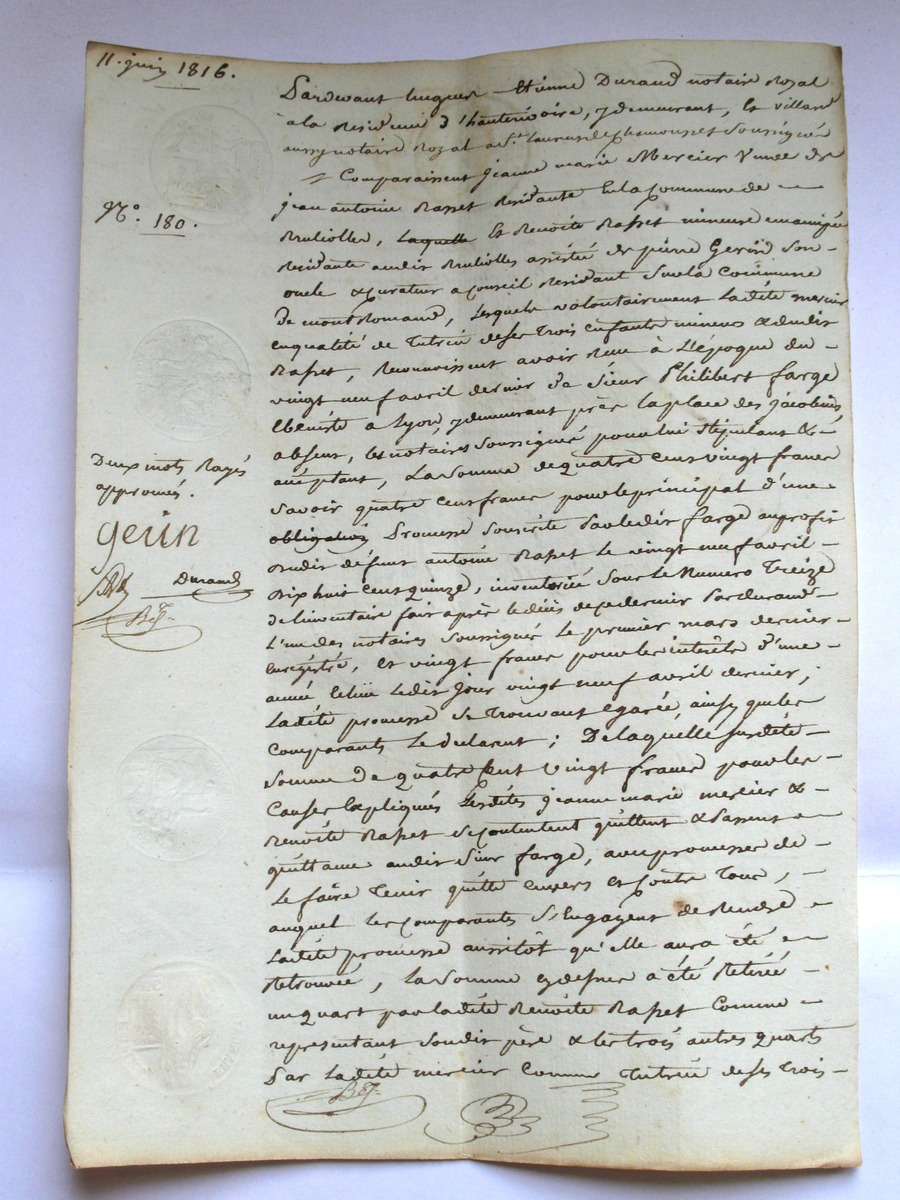 11. juin 1816.
Pardevant Etienne Durand notaire Royal
à la Residence d'hauterivoire, y demeurant, Et Villard
aussy notaire Royal a St. Laurens de chamousset Soussignés
Comparaissent jeanne marie Mercier Veuve de
N.° 180.
jean antoine Rasset Residante En la Commune de
Brulioles, laquelle Et Benoite Rasset mineure emancipée
Residante audit Brulioles assistée de pierre Gerin Son
oncle & Curateur a Conseil Residant Sur la Commune
De montRomand, Lesquels volontairement Ladite mercier
enqualité de Tutrice deses Trois enfants mineurs & dudit
Rasset, Reconnoissent avoir Reçu à L'époque du
vingt neuf avril dernier de Sieur Philibert farge
Ebeniste a Lyon, y demeurant près la place des jacobins,
absent, les notaires Soussignés pour lui Stipulant &
acceptant, La Somme de quatre cent vingt francs
Savoir quatre cent francs pour le principal d'une
obligation Promesse Souscrite Par ledit farge au profit
dudit défunt antoine Rasset le vingt neuf avril
dix huit cent quinze, inventoriée Sous le Numero Treize
de l'inventaire fait après le décès de ce dernier Par durand
L'un des notaires Soussignés le premier mars dernier
Enregistré, et vingt francs pour les intérêts d'une
année Echue Ledit jour vingt neuf avril dernier;
Ladite promesse Se Trouvant Egarée, ainsy que les
Comparants Le déclarent; De laquelle Susdite
Somme de quatre Cent vingt francs pour les
Causes Expliquées Lesdites jeanne marie mercier &
Benoite Rasset Se Contentent quittent & Passent
quittance audit Sieur farge, avec promesse de
Le faire Tenir quitte envers et Contre Tous,
auquel les Comparants S'Engagent de Rendre
Ladite promesse aussitôt qu'elle aura été
Retrouvée, La Somme cydessus a été Retirée
un quart par ladite Benoite Rasset Comme
representant Sondit père & les trois autres quarts
Par Ladite mercier Comme Tutrice de Ses Trois
Deux mots Rayés
approuvés.
gerin
Durand